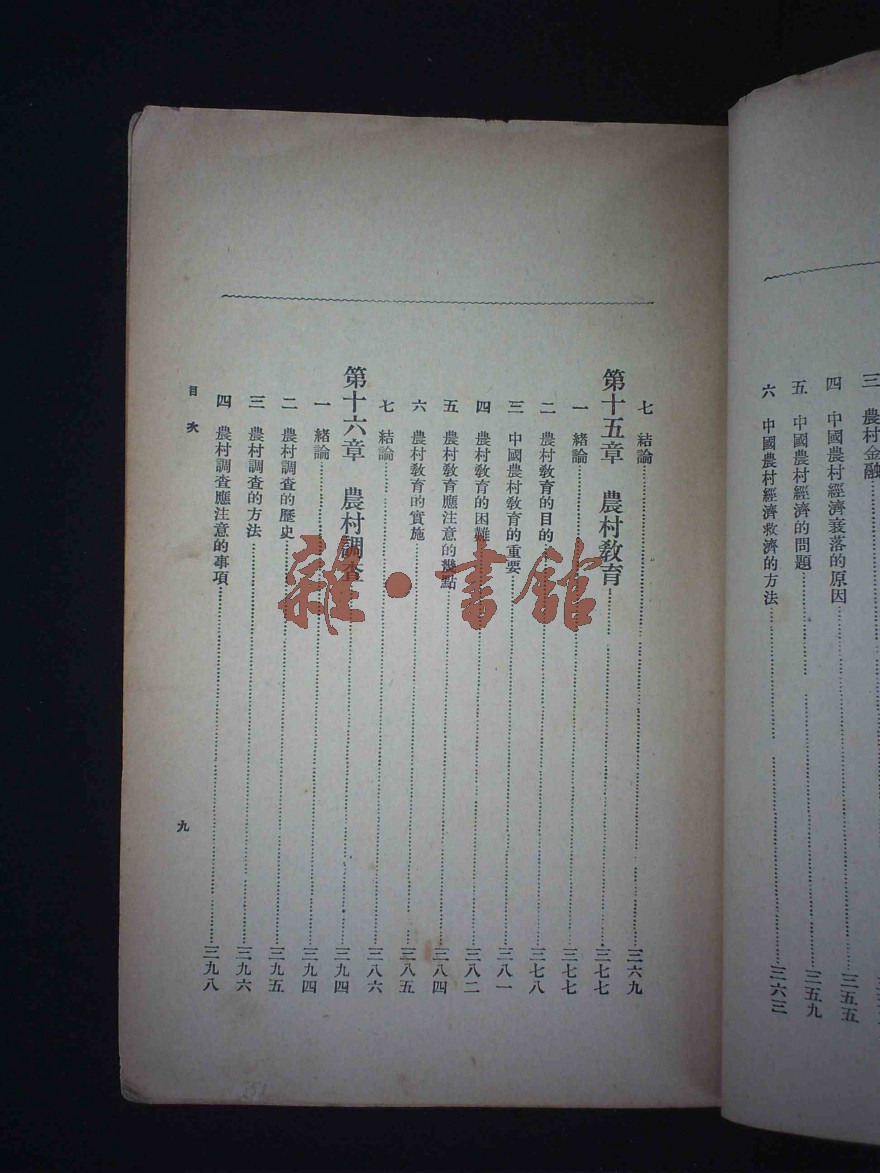 三 農村金融
四 中國農村經濟衰落的原因 三五五
五 中國農村經濟的問題 三五九
六 中國農村經濟救濟的方法 三六三
七 結論 三六九
第十五章 農村教育 三七七
一 緒論 三七七
二 農村教育的目的 三七八
三 中國農村教育的重要 三八一
四 農村教育的困難 三八二
五 農村教育應注意的幾點 三八四
六 農村教育的實施 三八五
七 結論 三八六
第十六章 農村調查 三九四
一 緒論 三九四
二 農村調查的歷史 三九五
三 農村調查的方法 三九六
四 農村調查應注意的事項 三九八
目次
九
雜·書館